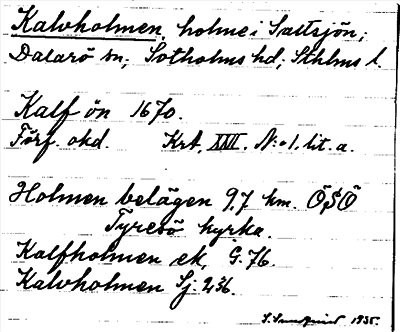 Kalvholmen, holme i Saltsjön;
Dalarö sn; Sotholms hd; Sthlms l.
Kalf ön 1670.
Förf. okd. Krt. XXVI. N:o 1. lit. a.
Holmen belägen 9,7 km. ÖSÖ
Tyresö kyrka.
Kalfholmen ek. G. 76.
Kalvholmen Sj. 236.
1935.